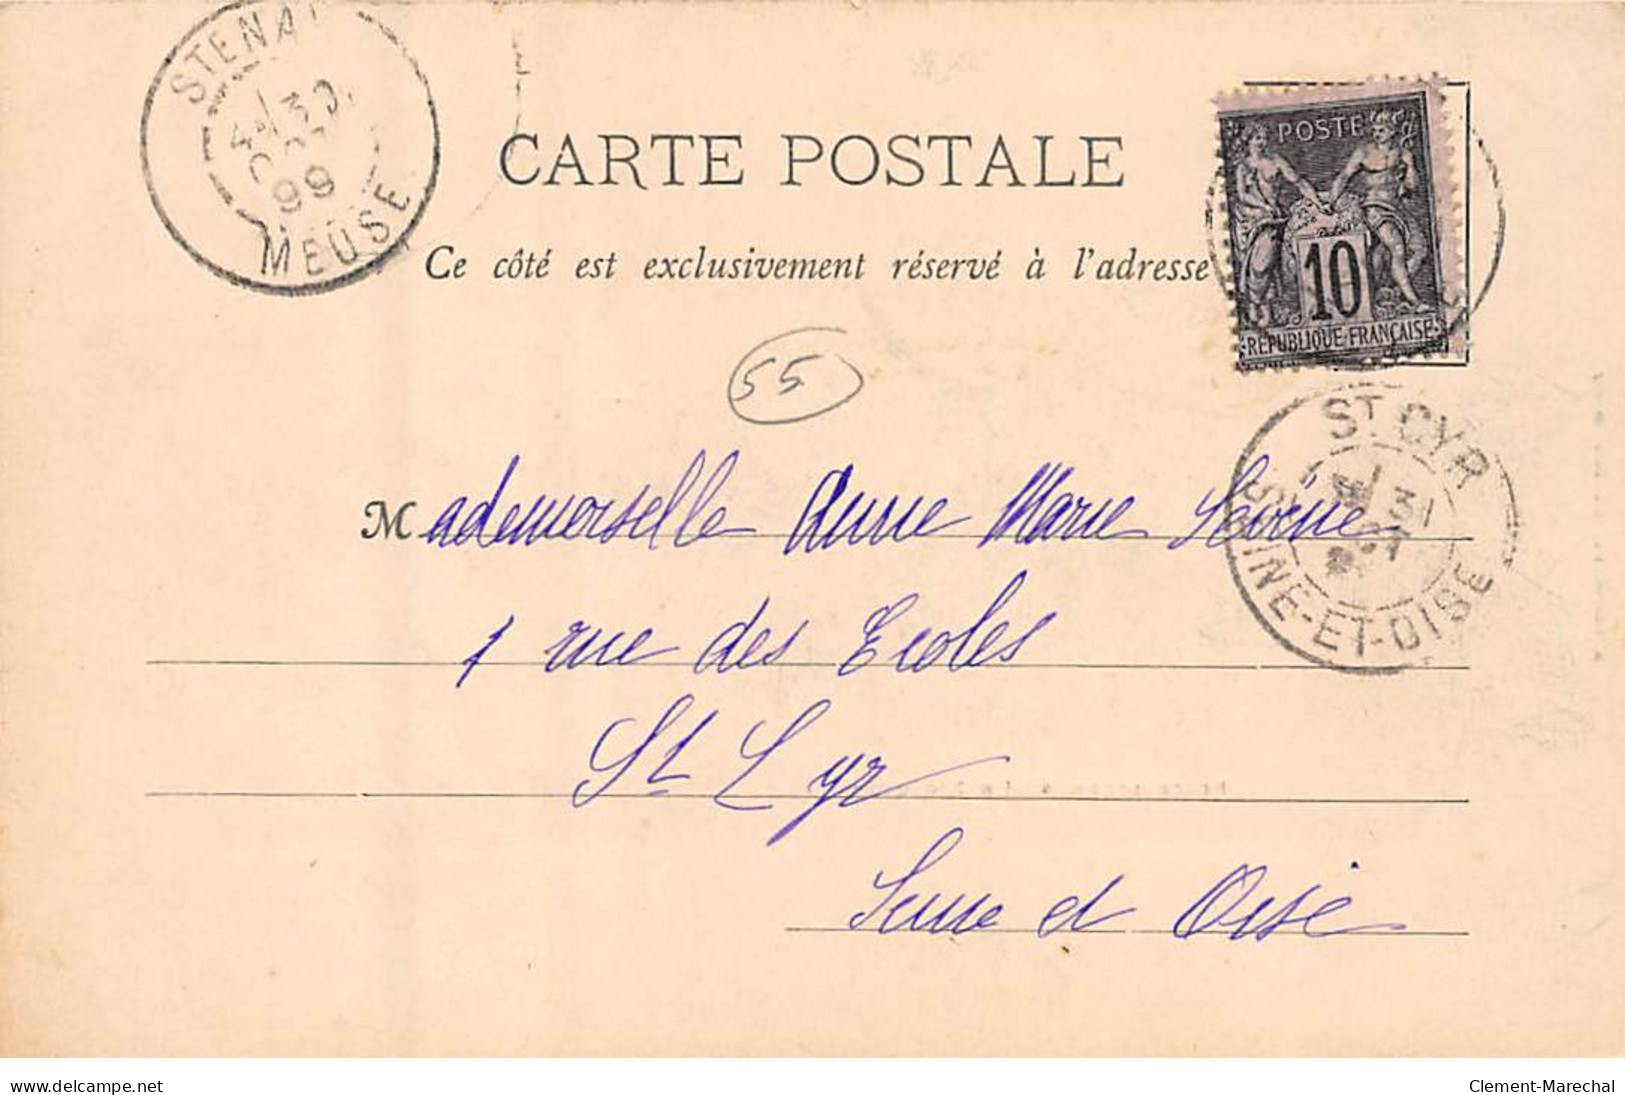 STENAY
30
99
MEUSE
CARTE POSTALE
Ce côté est exclusivement réservé à l'adresse
POSTE
10
REPUBLIQUE FRANÇAISE
55
ST CYR
31
SEINE-ET-OISE
Mademoiselle Anne Marie
1 rue des Ecoles
St Cyr
Seine et Oise
delcampe.net
Clement-Marechal